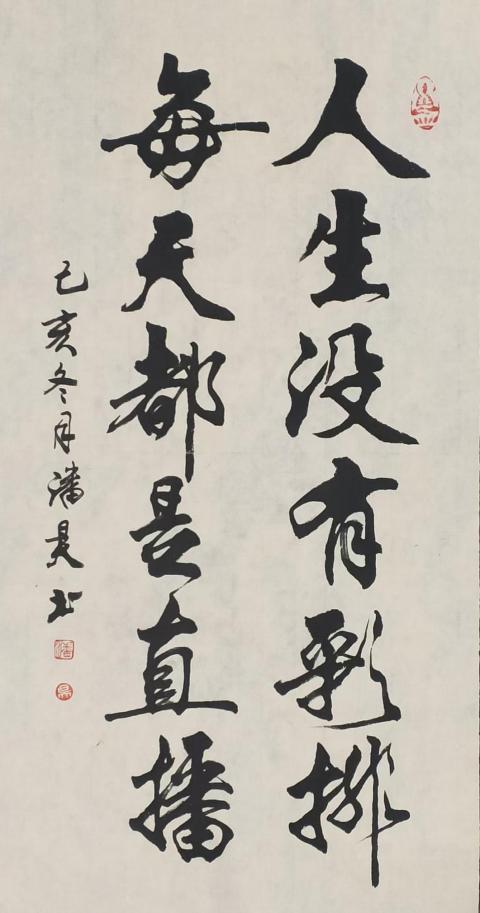 人生没有彩排
每天都是直播
己亥冬月潘昊书